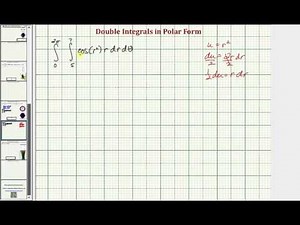 Double Integrals in Polar Form
∫₀^{2π} ∫₅^7 cos(r²) r dr dθ
u = r²
du/2 = 2r/2 dr
½ du = r dr